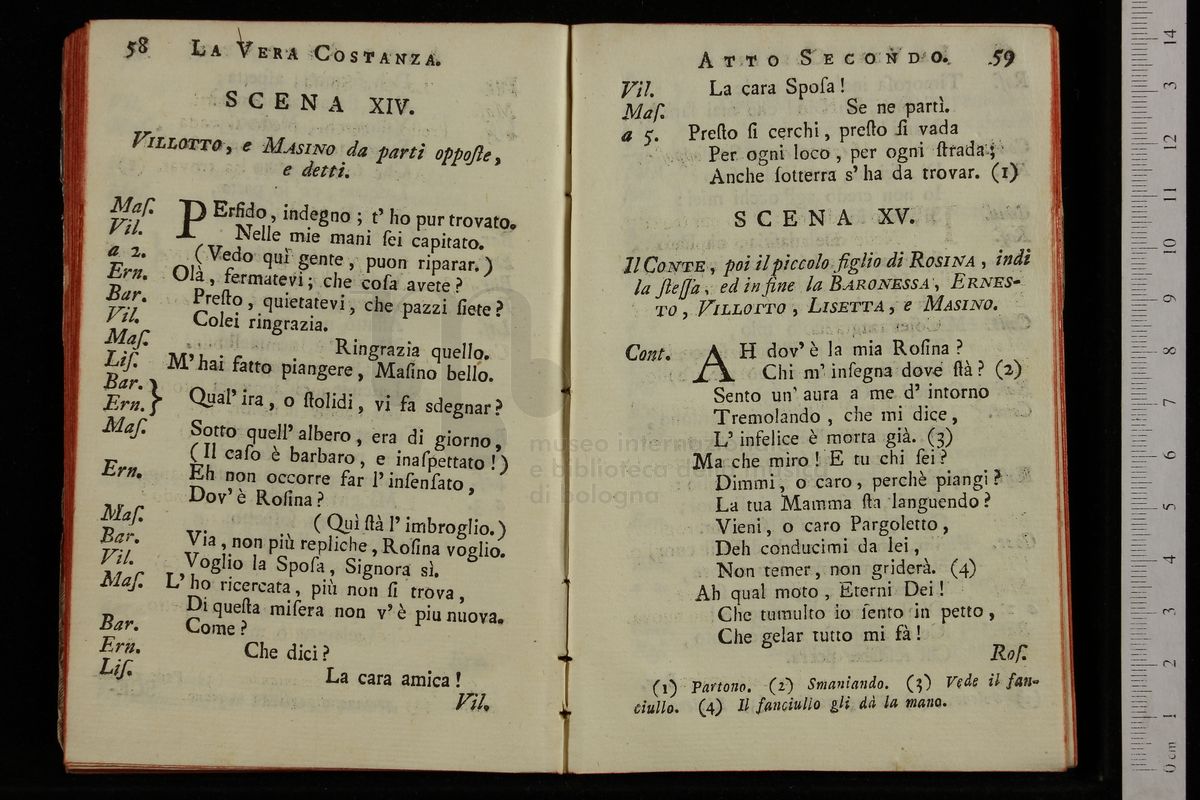 58 LA VERA COSTANZA.
SCENA XIV.
VILLOTTO, e MASINO da parti oppoſte,
e detti.
Maſ. PErfido, indegno; t' ho pur trovato.
Vil. Nelle mie mani ſei capitato.
a 2. (Vedo quì gente, puon riparar.)
Ern. Olà, fermatevi; che coſa avete?
Bar. Preſto, quietatevi, che pazzi ſiete?
Vil. Colei ringrazia.
Maſ. Ringrazia quello.
Liſ. M' hai fatto piangere, Maſino bello.
Bar. }
Ern. } Qual' ira, o ſtolidi, vi fa sdegnar?
Maſ. Sotto quell' albero, era di giorno,
(Il caſo è barbaro, e inaſpettato!)
Ern. Eh non occorre far l' inſenſato,
Dov' è Roſina?
Maſ. (Quì ſtà l' imbroglio.)
Bar. Via, non più repliche, Roſina voglio.
Vil. Voglio la Spoſa, Signora sì.
Maſ. L' ho ricercata, più non ſi trova,
Di queſta miſera non v' è piu nuova.
Bar. Come?
Ern. Che dici?
Liſ. La cara amica!
Vil.
ATTO SECONDO. 59
Vil. La cara Spoſa!
Maſ. Se ne partì.
a 5. Preſto ſi cerchi, preſto ſi vada
Per ogni loco, per ogni ſtrada;
Anche ſotterra s' ha da trovar. (1)
SCENA XV.
Il CONTE, poi il piccolo figlio di ROSINA, indi
la ſteſſa, ed in fine la BARONESSA, ERNES-
TO, VILLOTTO, LISETTA, e MASINO.
Cont. AH dov' è la mia Roſina?
Chi m' inſegna dove ſtà? (2)
Sento un' aura a me d' intorno
Tremolando, che mi dice,
L' infelice è morta già. (3)
Ma che miro! E tu chi ſei?
Dimmi, o caro, perchè piangi?
La tua Mamma ſta languendo?
Vieni, o caro Pargoletto,
Deh conducimi da lei,
Non temer, non griderà. (4)
Ah qual moto, Eterni Dei!
Che tumulto io ſento in petto,
Che gelar tutto mi fà!
Roſ.
(1) Partono. (2) Smaniando. (3) Vede il fan-
ciullo. (4) Il fanciullo gli dà la mano.
museo internazionale
e biblioteca della musica
di bologna
0 cm 1 2 3 4 5 6 7 8 9 10 11 12 3 14